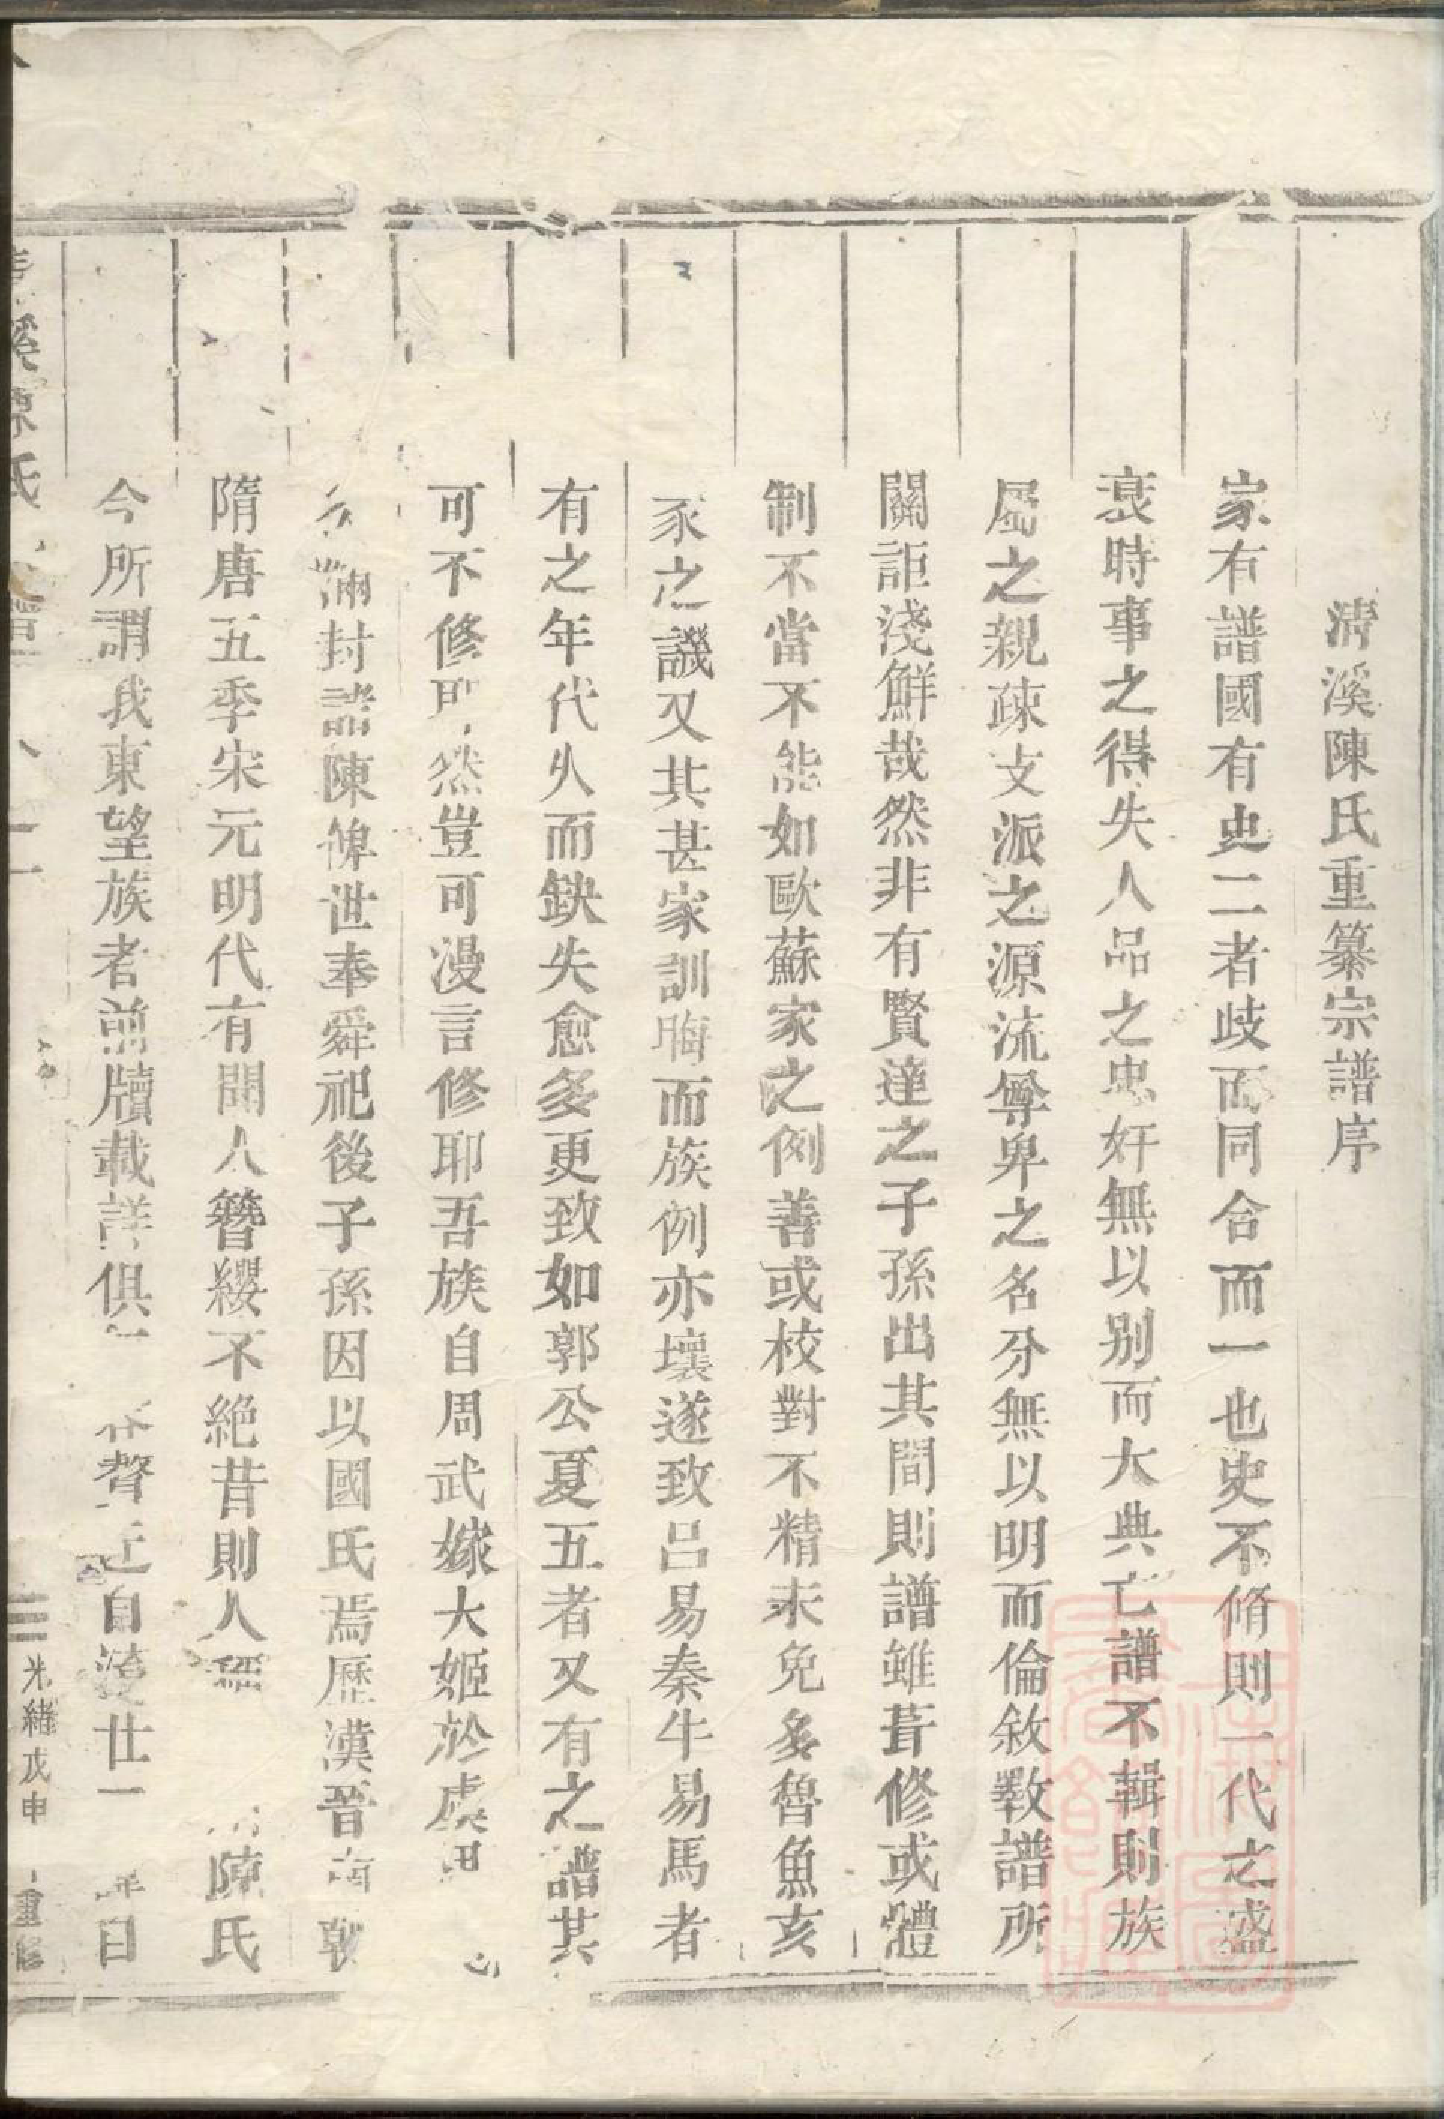 清溪陳氏重纂宗譜序
家有譜國有史二者歧而同合而一也史不脩則一代之盛
衰時事之得失人品之忠奸無以别而大典亡譜不輯則族
屬之親疎支派之源流尊卑之名分無以明而倫敘斁譜所
關詎淺鮮哉然非有賢達之子孫出其間則譜雖葺修或體
制不當不能如歐蘇家之例善或校對不精未免多魯魚亥
豕之譏又其甚家訓晦而族例亦壞遂致呂易秦牛易馬者
有之年代久而缺失愈多更致如郭公夏五者又有之譜其
可不修耶然豈可漫言修耶吾族自周武嫁大姬於虞
滿封諸陳俾世奉舜祀後子孫因以國氏焉歷漢晉南朝
隋唐五季宋元明代有聞人簪纓不絶昔則人 陳氏
今所謂我東望族者前牘載詳俱 聲 自 仕 日
溪陳氏 譜
光緒戊申 重修